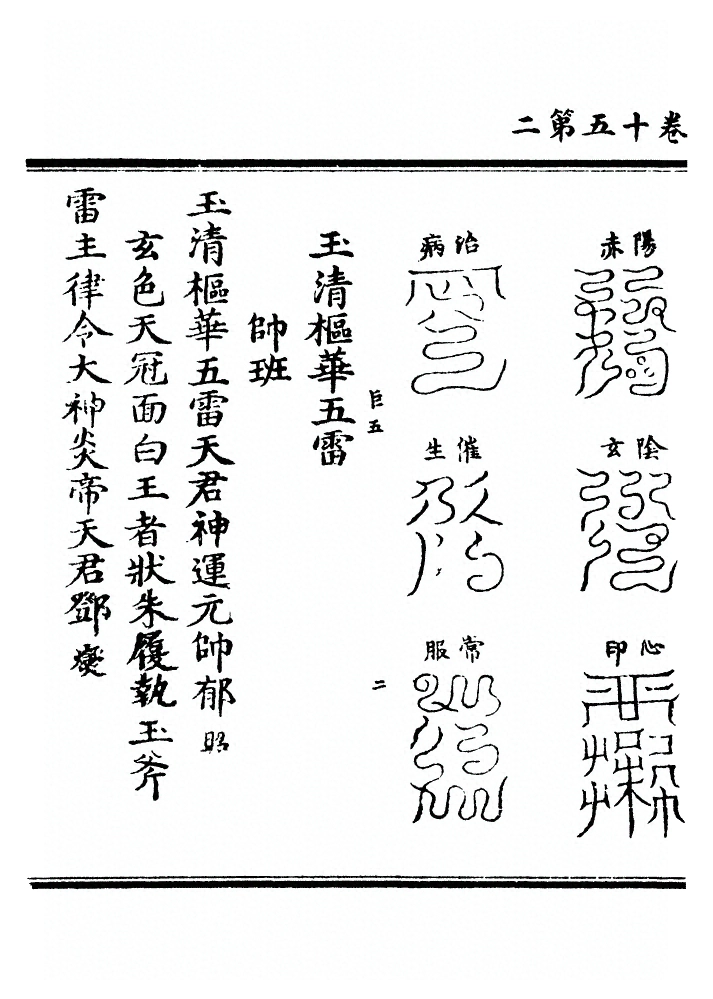 卷十五第二
陽赤
陰玄
心印
治病
催生
常服
巨五
二
玉清樞華五雷
帥班
玉清樞華五雷天君神運元帥郁
玄色天冠面白王者狀朱履執玉斧
雷主律令大神炎帝天君鄧燮